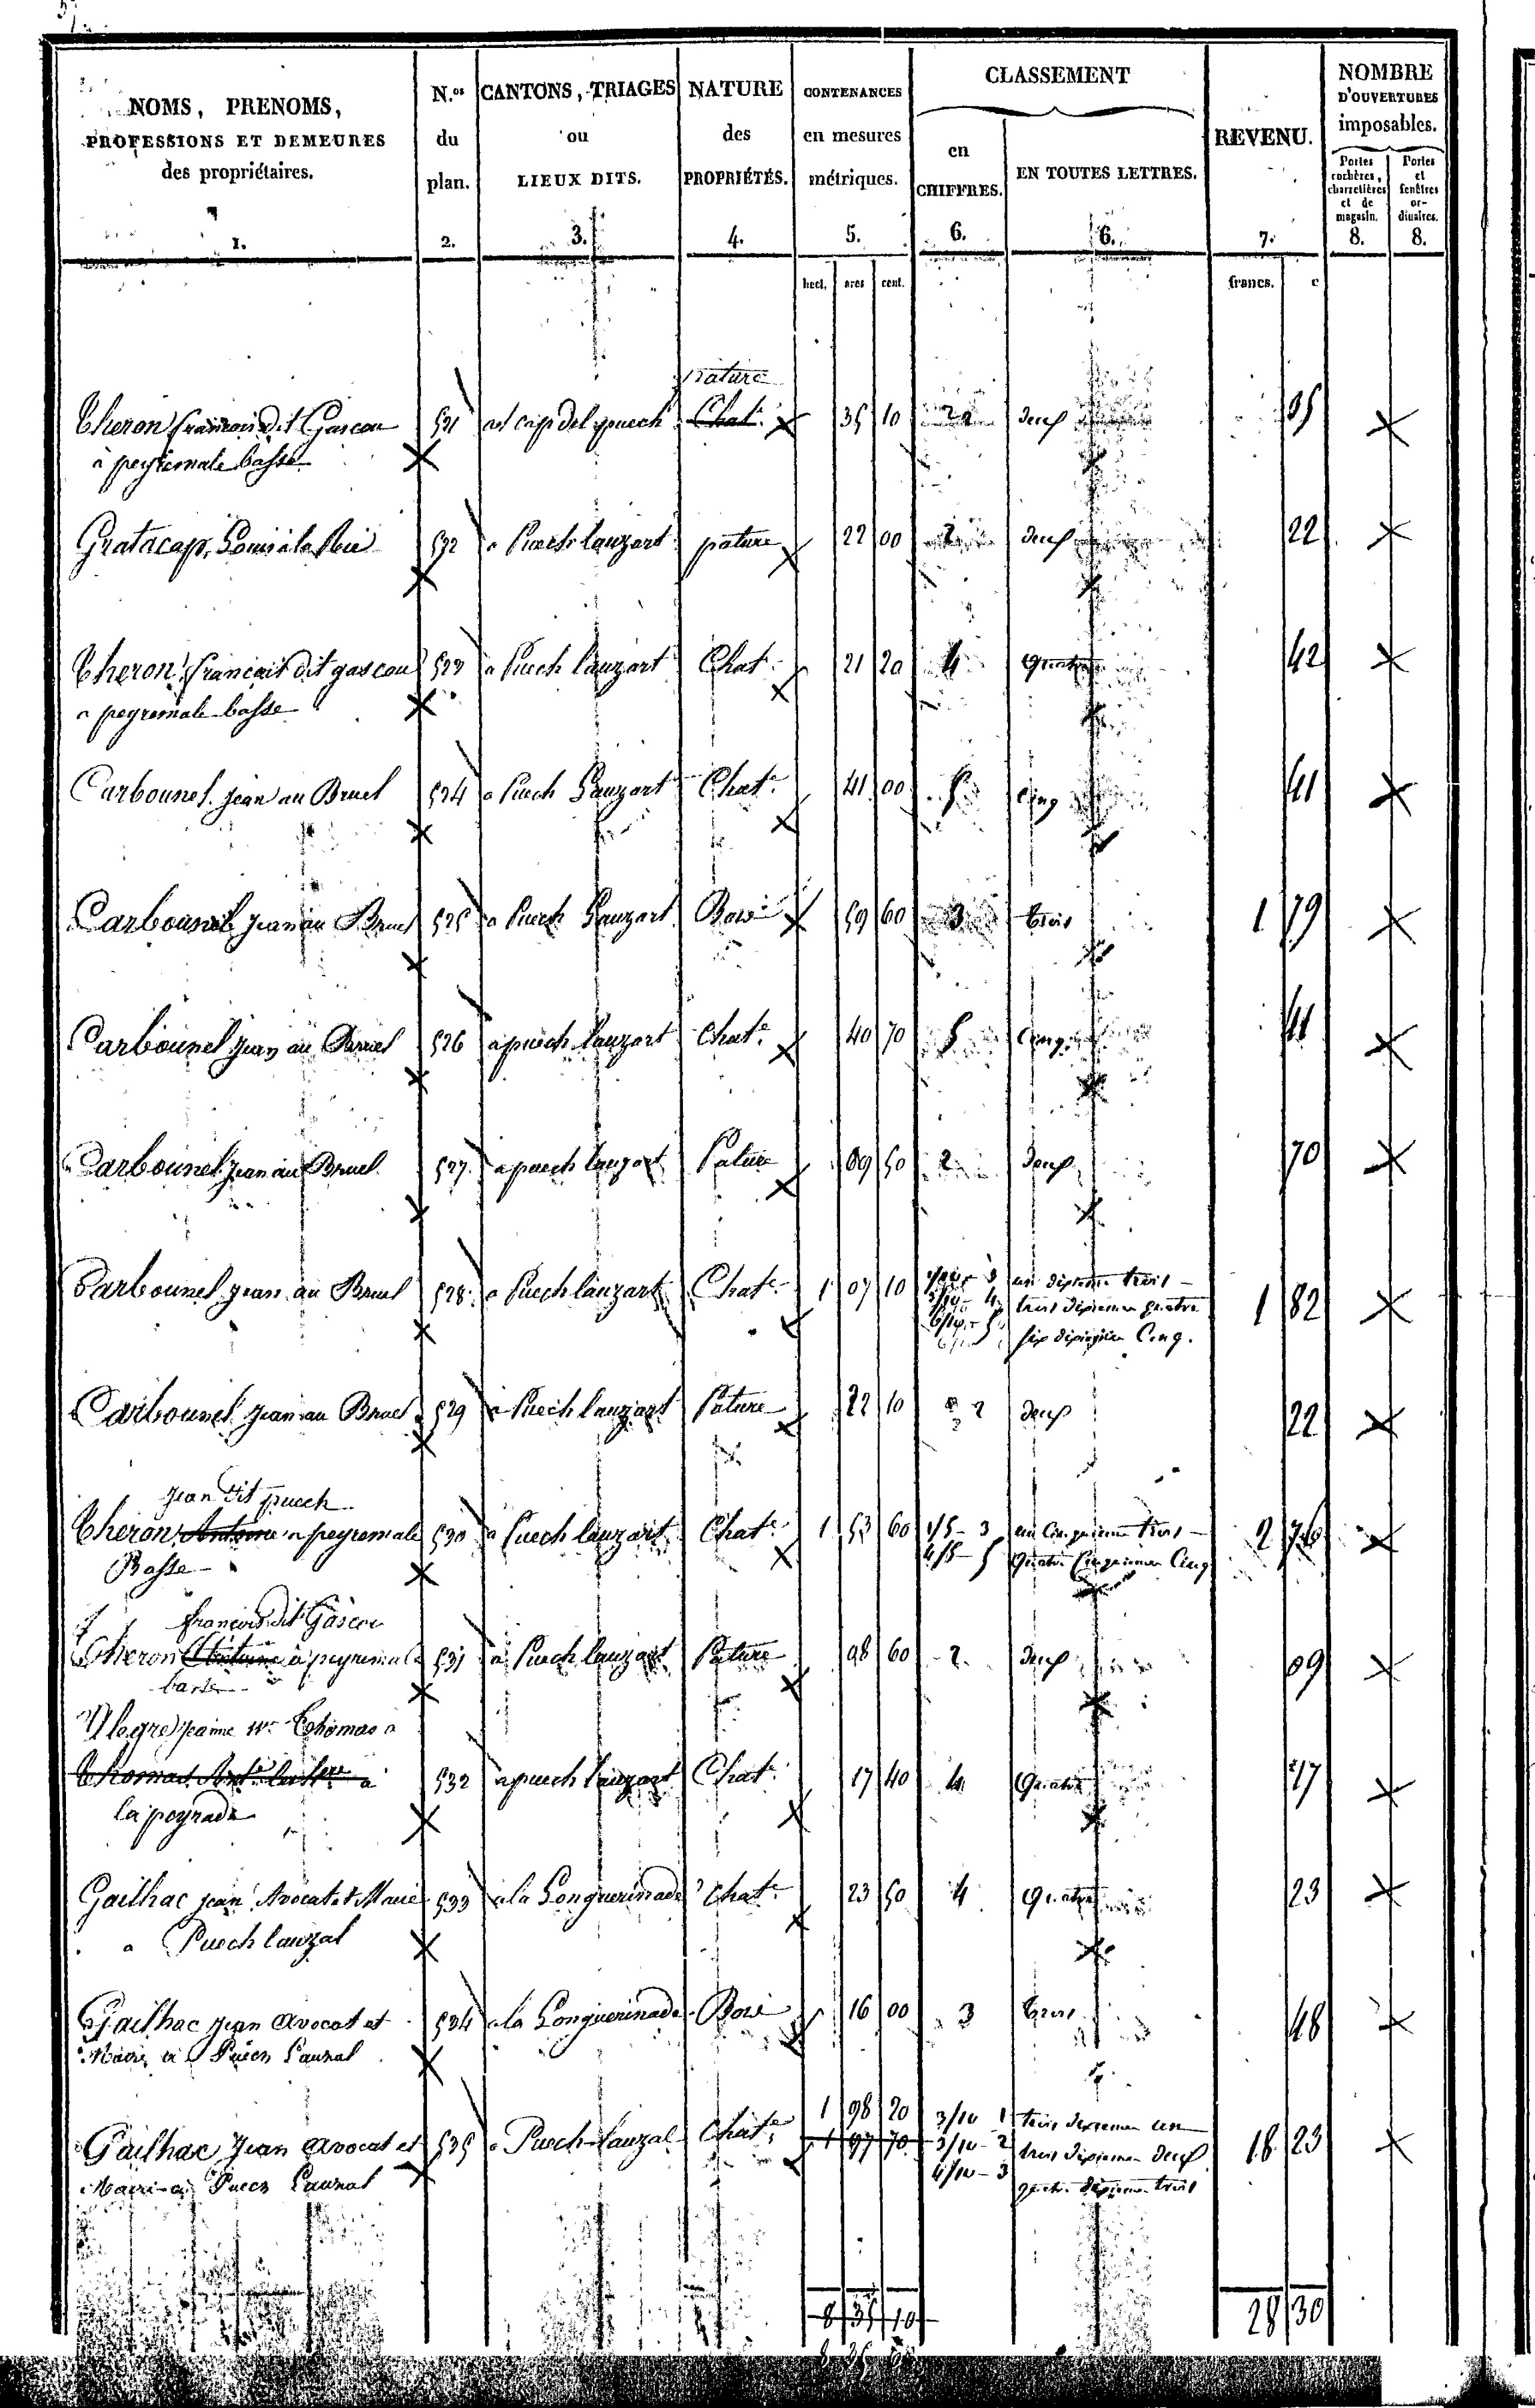 NOMS, PRENOMS,
PROFESSIONS ET DEMEURES
des propriétaires.
1.
N.os
du
plan.
2.
CANTONS, TRIAGES
ou
LIEUX DITS.
3.
NATURE
des
PROPRIÉTÉS.
4.
CONTENANCES
en mesures
métriques.
5.
CLASSEMENT
en
CHIFFRES.
6.
EN TOUTES LETTRES.
6.
REVENU.
7.
NOMBRE
D'OUVERTURES
imposables.
Portes cochères, charretières et de magasin.
8.
Portes et fenêtres ordinaires.
8.
hect. ares cent. francs. c
pature
Theron francois dit Gascou 521 al cap del puech Chat. 35 10 2 deux 35
à peyremale basse
Gratacap, Louis à la 522 a Puech lauzart pature 22 00 2 deux 22
Theron francois dit gascou 523 a Puech lauzart Chat. 21 20 4 quatre 42
a peyremale basse
Carbounel jean au Bruel 524 a Puech Lauzart Chat.e 41 00 5 cinq 41
Carbounel jean au Bruel 525 a Puech Lauzart Bois 59 60 3 trois 1 79
Carbounel jean au Bruel 526 a puech lauzart Chat.e 40 70 5 Cinq 41
Carbounel jean au Bruel 527 a puech lauzart Pature 69 50 2 deux 70
Carbounel jean au Bruel 528 a Puech lauzart Chat.e 1 07 10 1/10 - 3 un dixieme trois 1 82
3/10 - 4 trois dixiemes quatre
6/10 - 5 six dixiemes Cinq.
Carbounel jean au Bruel 529 a Puech lauzart Pature 22 10 2 deux 22
jean dit puech
Theron Antoine a peyremale 530 a Puech lauzart Chat.e 1 53 60 1/5 - 3 un Cinquieme trois 2 76
Basse 4/5 - 5 quatre Cinquiemes Cinq
francois dit Gascou
Theron Antoine a peyremale 531 a Puech lauzart Pature 08 60 2 deux 09
basse
Alegre jeanne Ve Thomas a
Thomas Ant.e a 532 a puech lauzart Chat. 17 40 4 Quatre 17
la peyrade
Gailhac jean Avocat et Maire 533 a la Longuerinade Chat.e 23 50 4 Quatre 23
a Puech lauzal
Gailhac jean avocat et 534 a la Longuerinade Bois 16 00 3 trois 48
Maire a Puech Lauzal
1 98 20 3/10 1 trois dixiemes un
Gailhac jean avocat et 535 a Puech lauzal Chat.e 1 97 70 3/10 - 2 trois dixiemes deux 18 23
Maire a Puech Lauzal 4/10 - 3 quatre dixiemes trois
8 35 10 28 30
8 35